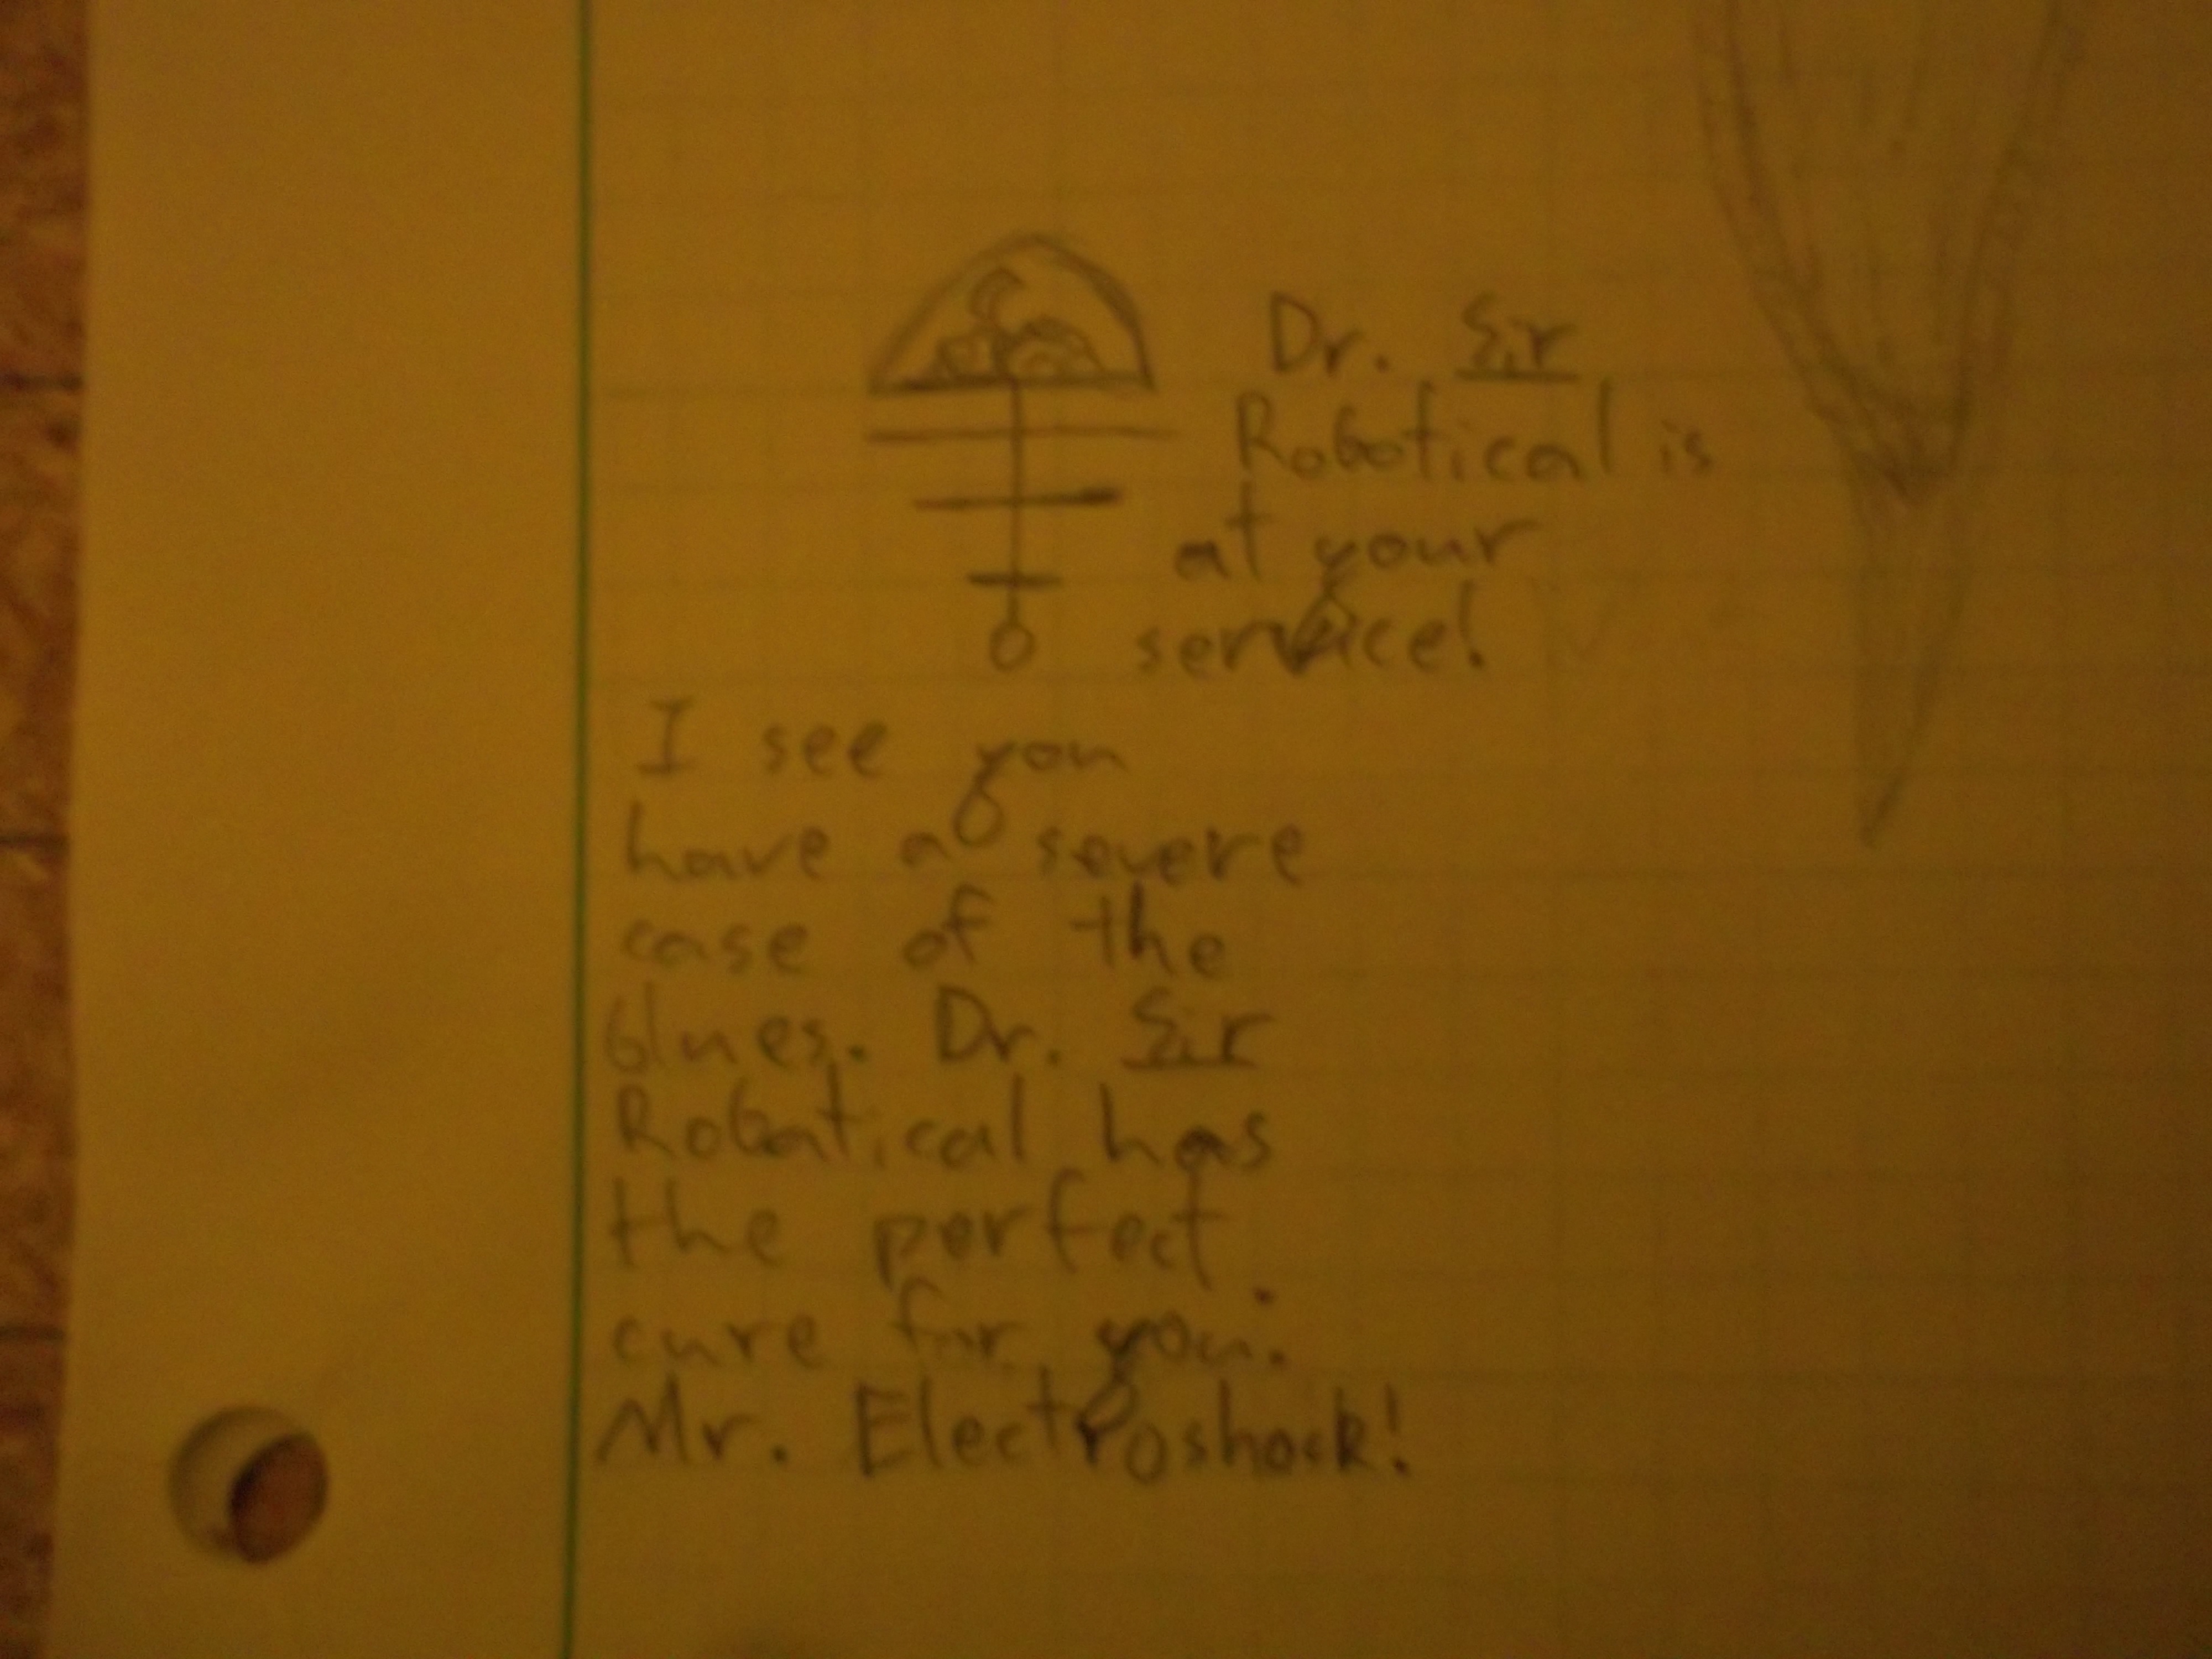 Dr. Sir
Robotical is
at your
service!
I see you
have a severe
case of the
blues. Dr. Sir
Robotical has
the perfect
cure for you:
Mr. Electroshock!